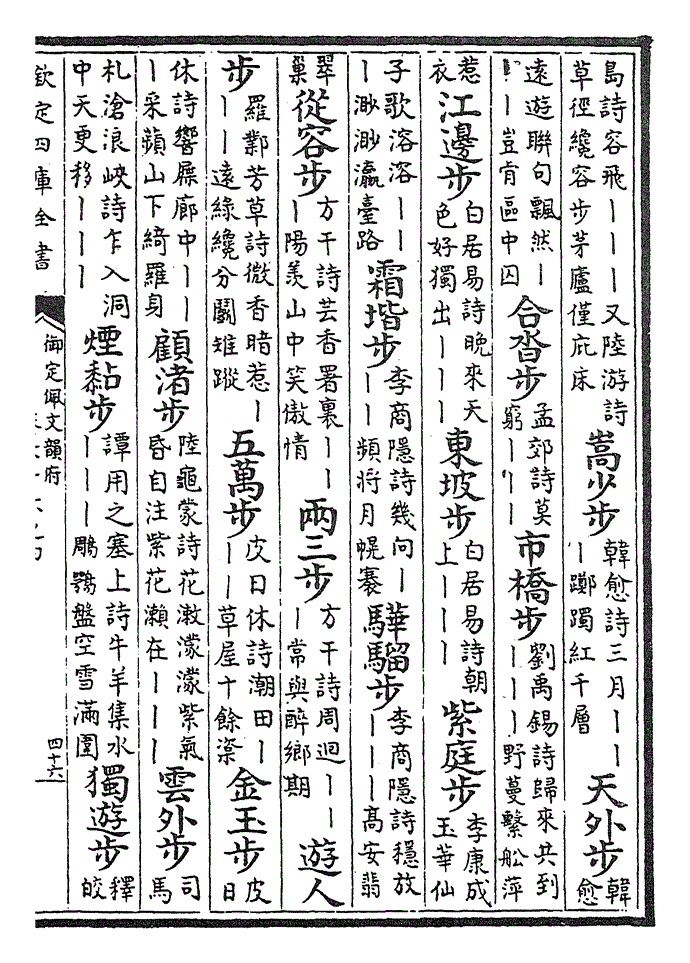 島詩容飛丨丨丨又陸游詩草徑纔容步茅廬僅庇床嵩少步韓愈詩三月丨丨丨躑躅紅千層天外步韓愈
遠遊聯句飄然丨丨丨豈肯區中囚合沓步孟郊詩莫窮丨丨丨市橋步劉禹錫詩歸來共到丨丨丨野蔓繫船萍
惹衣江邊步白居易詩晚來天色好獨出丨丨丨東坡步白居易詩朝上丨丨丨紫庭步李康成玉華仙
子歌溶溶丨丨丨渺渺瀛臺路霜堦步李商隱詩幾向丨丨丨頻將月幌褰驊騮步李商隱詩穩放丨丨丨高安翡
翠巢從容步方干詩芸香署裏丨丨丨陽羨山中笑傲情兩三步方干詩周迴丨丨丨常與醉鄉期遊人
步羅鄴芳草詩微香暗惹丨丨丨遠綠纔分鬬雉蹤五萬步皮日休詩潮田丨丨丨草屋十餘楶金玉步皮日
休詩響屧廊中丨丨丨采蘋山下綺羅身顧渚步陸龜蒙詩花漵濛濛紫氣昏自注紫花瀨在丨丨丨雲外步司馬
札滄浪峽詩乍入洞中天更移丨丨丨煙黏步譚用之塞上詩牛羊集水丨丨丨鵰鶚盤空雪滿圍獨遊步釋皎
欽定四庫全書
御定佩文韻府
四十六